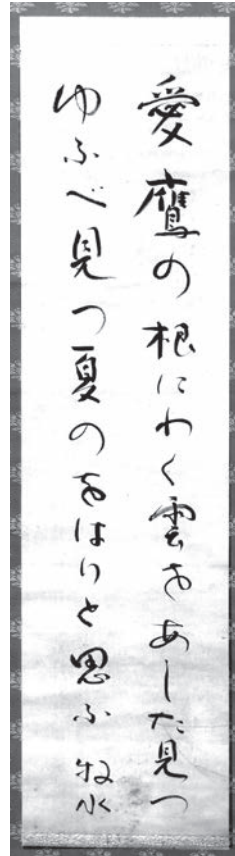 愛鷹の根にわく雲をあした見つ
ゆふべ見つ夏のをはりと思ふ 牧水